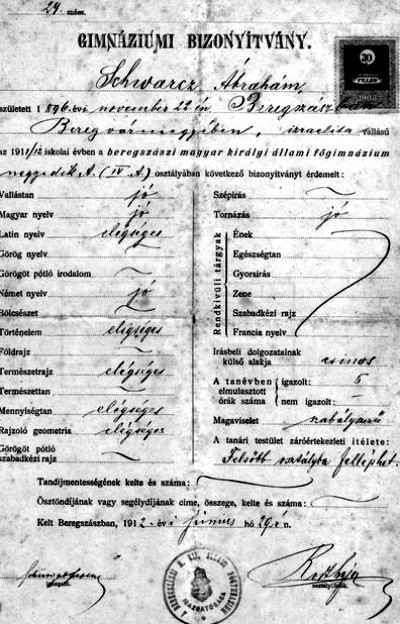 24. szám.
GIMNÁZIUMI BIZONYÍTVÁNY.
30
FILLÉR
Schwarcz Ábrahám
született 1896. évi november 22 én Beregszászban
Bereg vármegyében, izraelita vallású
az 1911/12 iskolai évben a beregszászi magyar királyi állami főgimnázium
negyedik A. (IV A.) osztályában következő bizonyítványt érdemelt:
Vallástan jó
Magyar nyelv jó
Latin nyelv elégséges
Görög nyelv
Görögöt pótló irodalom
Német nyelv jó
Bölcsészet
Történelem elégséges
Földrajz
Természetrajz elégséges
Természettan
Mennyiségtan elégséges
Rajzoló geometria elégséges
Görögöt pótló
szabadkézi rajz
Szépírás
Tornázás jó
Rendkívüli tárgyak
Ének
Egészségtan
Gyorsírás
Zene
Szabadkézi rajz
Francia nyelv
Írásbeli dolgozatainak
külső alakja csinos
A tanévben elmulasztott órák száma
igazolt: 5
nem igazolt: —
Magaviselet szabályszerű
A tanári testület záróértekezleti ítélete:
Felsőbb osztályba felléphet.
Tandíjmentességének kelte és száma:
Ösztöndíjának vagy segélydíjának címe, összege, kelte és száma:
Kelt Beregszászban, 1912. évi június hó 29. én.
igazgató.
osztályfő.